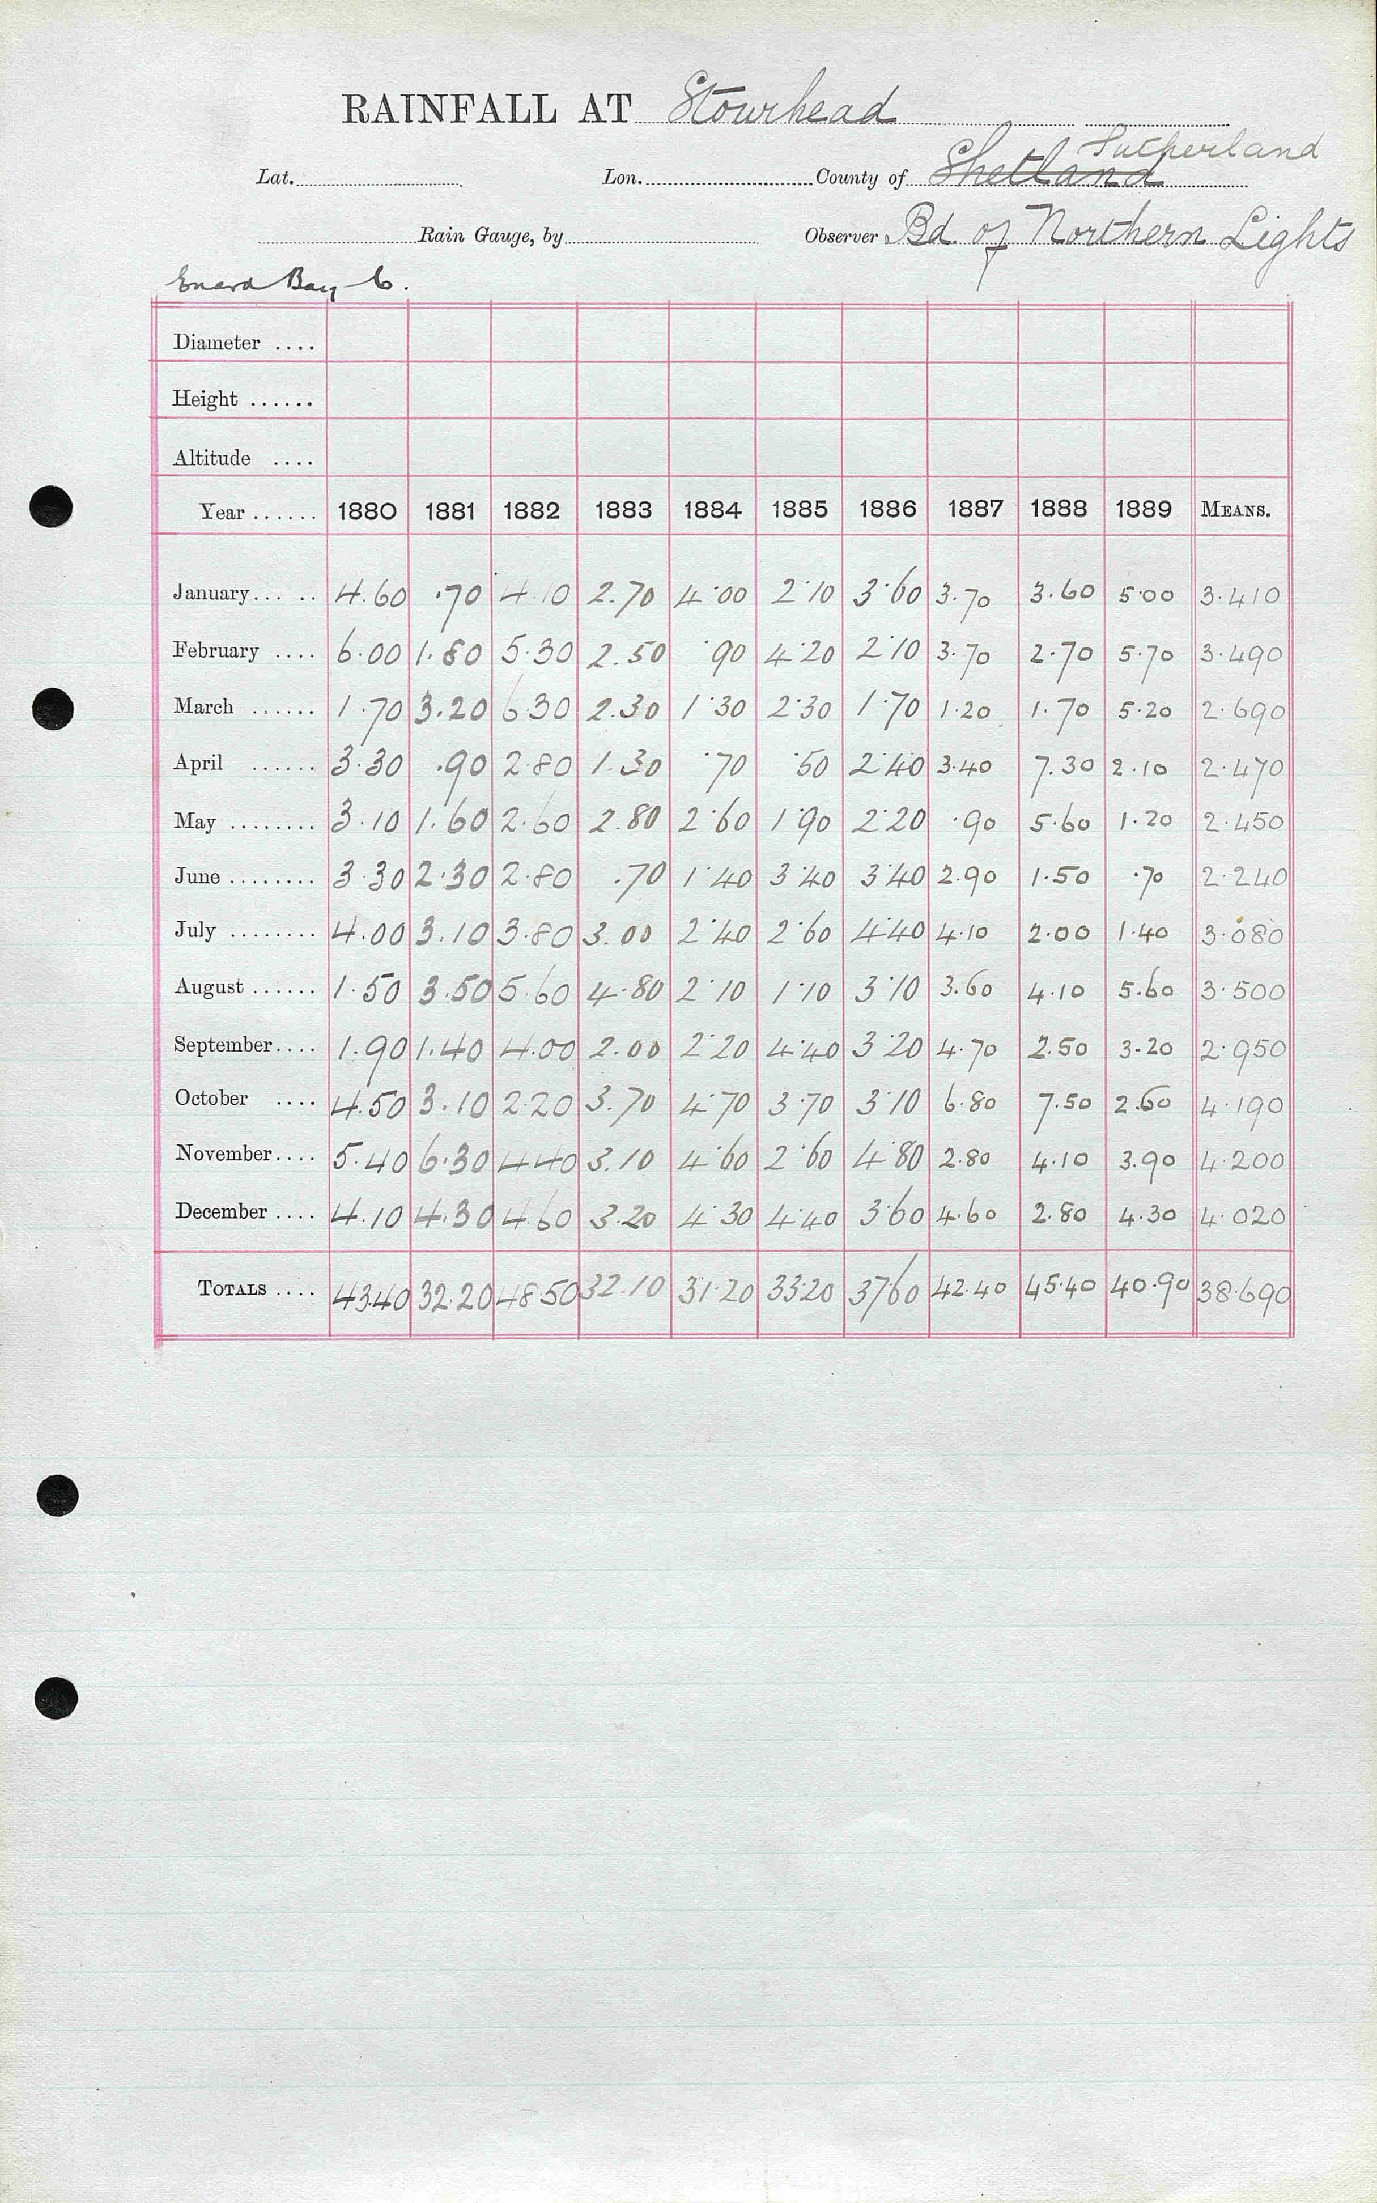 RAINFALL AT Stourhead
Sutherland
Lat. Lon. County of Shetland
Rain Gauge, by Observer Bd. of Northern Lights
Enard Bay
Diameter ....
Height ......
Altitude ....
Year ...... 1880 1881 1882 1883 1884 1885 1886 1887 1888 1889 MEANS.
January... .. 4.60 .70 4.10 2.70 4.00 2.10 3.60 3.70 3.60 5.00 3.410
February .... 6.00 1.80 5.30 2.50 .90 4.20 2.10 3.70 2.70 5.70 3.490
March ...... 1.70 3.20 6.30 2.30 1.30 2.30 1.70 1.20 1.70 5.20 2.690
April ...... 3.30 .90 2.80 1.30 .70 .50 2.40 3.40 7.30 2.10 2.470
May ........ 3.10 1.60 2.60 2.80 2.60 1.90 2.20 .90 5.60 1.20 2.450
June ........ 3.30 2.30 2.80 .70 1.40 3.40 3.40 2.90 1.50 .70 2.240
July ........ 4.00 3.10 3.80 3.00 2.40 2.60 4.40 4.10 2.00 1.40 3.080
August ...... 1.50 3.50 5.60 4.80 2.10 1.10 3.10 3.60 4.10 5.60 3.500
September.... 1.90 1.40 4.00 2.00 2.20 4.40 3.20 4.70 2.50 3.20 2.950
October .... 4.50 3.10 2.20 3.70 4.70 3.70 3.10 6.80 7.50 2.60 4.190
November.... 5.40 6.30 4.40 3.10 4.60 2.60 4.80 2.80 4.10 3.90 4.200
December .... 4.10 4.30 4.60 3.20 4.30 4.40 3.60 4.60 2.80 4.30 4.020
TOTALS .... 43.40 32.20 48.50 32.10 31.20 33.20 37.60 42.40 45.40 40.90 38.690